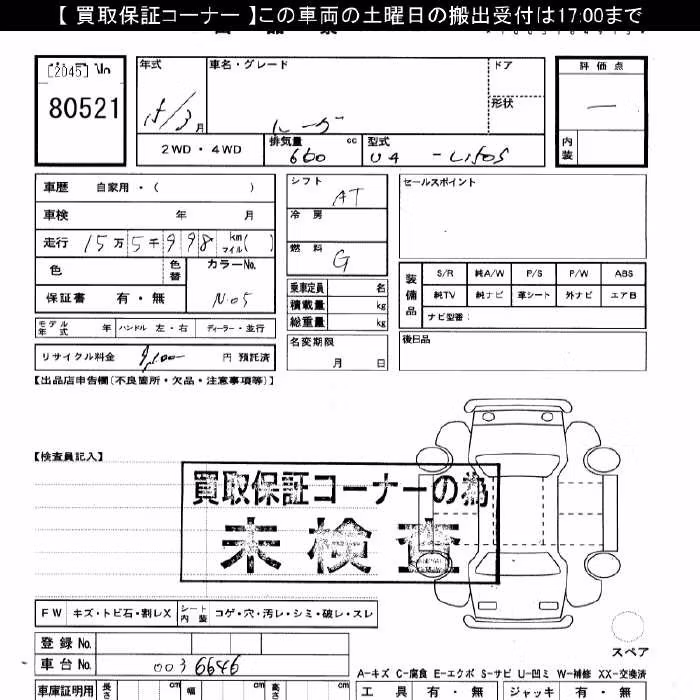 【 買取保証コーナー 】この車両の土曜日の搬出受付は17:00まで
[2045] No
80521
年式
15/3月
車名・グレード
ドア
形状
2WD・4WD
排気量
660 cc
型式
評価点
―
内装
車歴 自家用・( )
車検 年 月
走行 15万5千998 km マイル( )
色
色替
カラーNo.
N05
保証書 有・無
モデル年式 年 ハンドル 左・右 ディーラー・並行
リサイクル料金 円 預託済
シフト
AT
冷房
燃料
G
乗車定員 名
積載量 kg
総重量 kg
名変期限
月 日
セールスポイント
装備品
S/R 純A/W P/S P/W ABS
純TV 純ナビ 革シート 外ナビ エアB
ナビ型番:
後日品
【出品店申告欄(不良箇所・欠品・注意事項等)】
【検査員記入】
買取保証コーナーの為
未検査
FW キズ・トビ石・割レX シート内装 コゲ・穴・汚レ・シミ・破レ・スレ
スペア
登録 No.
車台 No. 0036646
A−キズ C−腐食 E−エクボ S−サビ U−凹ミ W−補修 XX−交換済
車庫証明用 長さ cm 幅 cm 高さ cm
工具 有・無 ジャッキ 有・無